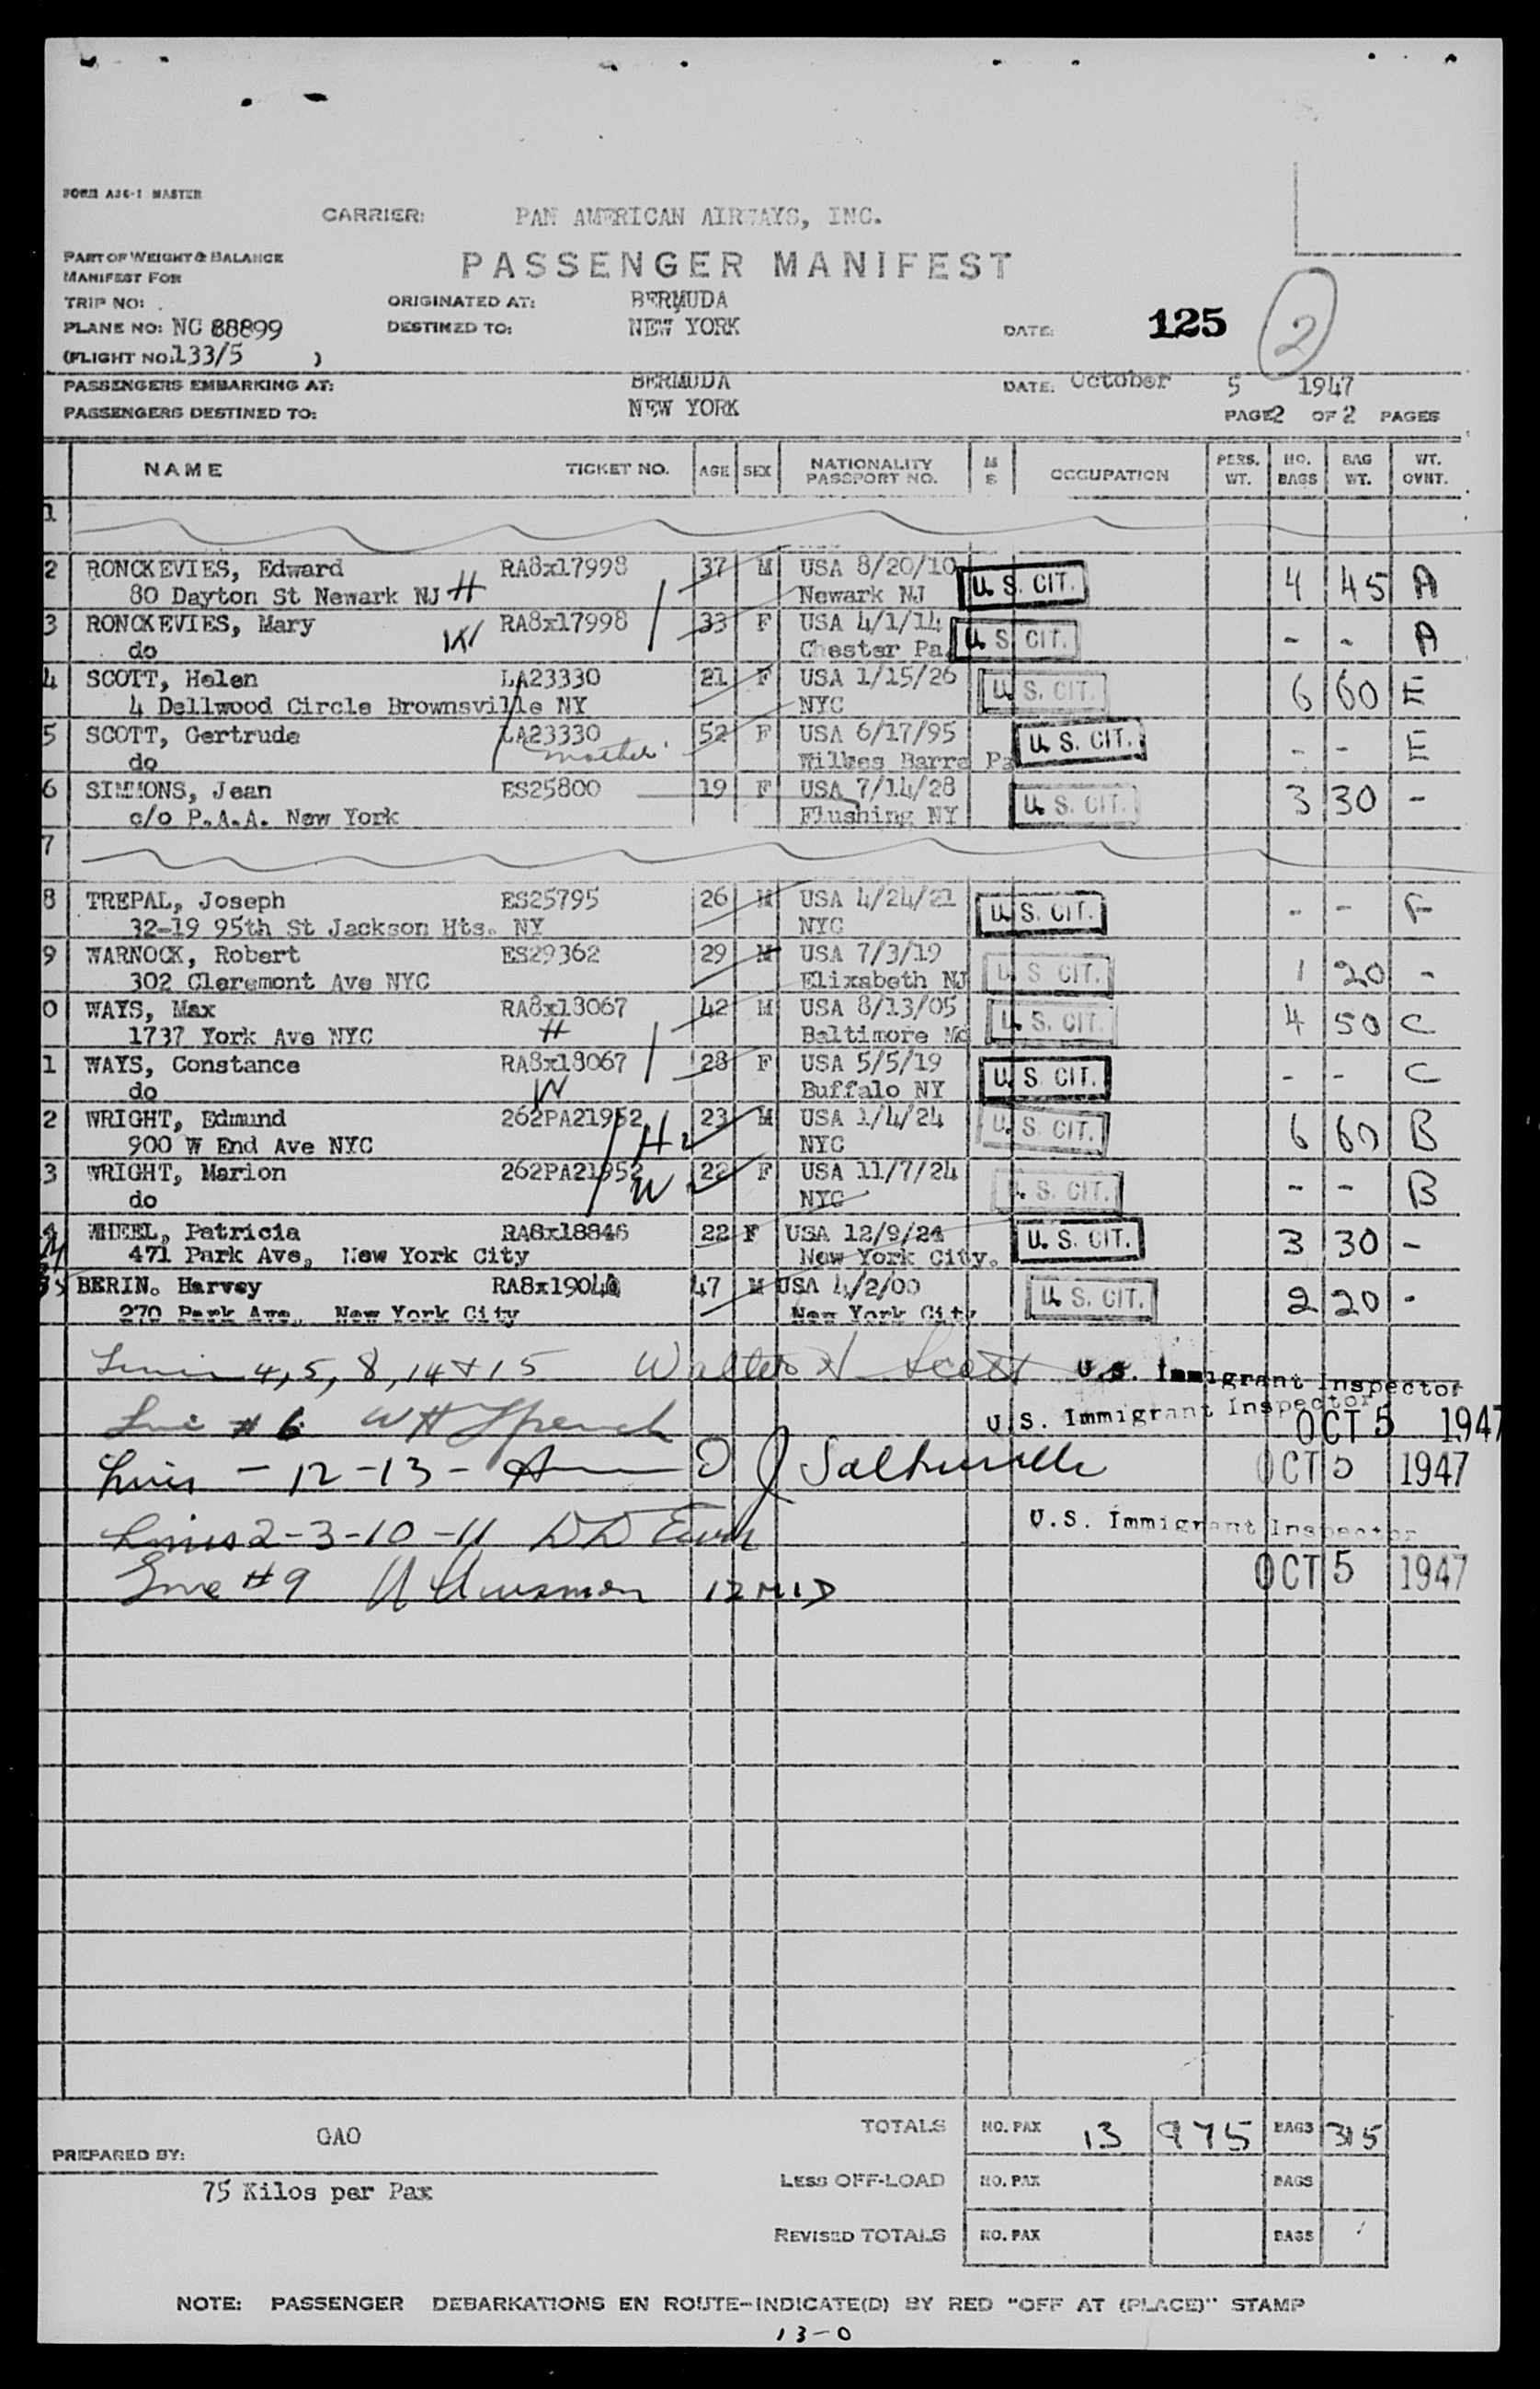 FORM A36-1 MASTER
CARRIER: PAN AMERICAN AIRWAYS, INC.
PART OF WEIGHT & BALANCE
MANIFEST FOR
PASSENGER MANIFEST
TRIP NO: ORIGINATED AT: BERMUDA
PLANE NO: NC 88899 DESTINED TO: NEW YORK DATE: 125 2
(FLIGHT NO. 133/5 )
PASSENGERS EMBARKING AT: BERMUDA DATE: October 5 1947
PASSENGERS DESTINED TO: NEW YORK PAGE 2 OF 2 PAGES
NAME TICKET NO. AGE SEX NATIONALITY PASSPORT NO. M S OCCUPATION PERS. WT. NO. BAGS BAG WT. WT. OVHT.
1
2 RONCKEVIES, Edward RA8x17998 37 M USA 8/20/10 U.S. CIT. 4 45 A
80 Dayton St Newark NJ H Newark NJ
3 RONCKEVIES, Mary W RA8x17998 33 F USA 4/1/14 U.S. CIT. - - A
do Chester Pa.
4 SCOTT, Helen LA23330 21 F USA 1/15/26 U.S. CIT. 6 60 E
4 Dellwood Circle Brownsville NY NYC
5 SCOTT, Gertrude LA23330 52 F USA 6/17/95 U.S. CIT. - - E
do mother Wilkes Barre Pa
6 SIMMONS, Jean ES25800 19 F USA 7/14/28 U.S. CIT. 3 30 -
c/o P.A.A. New York Flushing NY
7
8 TREPAL, Joseph ES25795 26 M USA 4/24/21 U.S. CIT. - - F
32-19 95th St Jackson Hts. NY NYC
9 WARNOCK, Robert ES29362 29 M USA 7/3/19 U.S. CIT. 1 20 -
302 Cleremont Ave NYC Elixabeth NJ
0 WAYS, Max RA8x18067 42 M USA 8/13/05 U.S. CIT. 4 50 C
1737 York Ave NYC H Baltimore Md
1 WAYS, Constance RA8x18067 28 F USA 5/5/19 U.S. CIT. - - C
do W Buffalo NY
2 WRIGHT, Edmund 262PA21952 H 23 M USA 1/4/24 U.S. CIT. 6 60 B
900 W End Ave NYC NYC
3 WRIGHT, Marion 262PA21952 W 22 F USA 11/7/24 U.S. CIT. - - B
do NYC
14 WHEEL, Patricia RA8x18846 22 F USA 12/9/24 U.S. CIT. 3 30 -
471 Park Ave, New York City New York City.
15 BERIN. Harvey RA8x19040 47 M USA 4/2/00 U.S. CIT. 2 20 -
270 Park Ave, New York City New York City
Lines 4, 5, 8, 14 + 15 Walter H Scott U.S. Immigrant Inspector
Line # 6 W H U.S. Immigrant Inspector OCT 5 1947
Lines - 12 - 13 - OCT 5 1947
Lines 2 - 3 - 10 - 11 U.S. Immigrant Inspector
Line # 9 OCT 5 1947
TOTALS NO. PAX 13 975 BAGS 315
PREPARED BY: GAO
LESS OFF-LOAD NO. PAX BAGS
75 Kilos per Pax
REVISED TOTALS NO. PAX BAGS
NOTE: PASSENGER DEBARKATIONS EN ROUTE-INDICATE(D) BY RED "OFF AT (PLACE)" STAMP
13-0